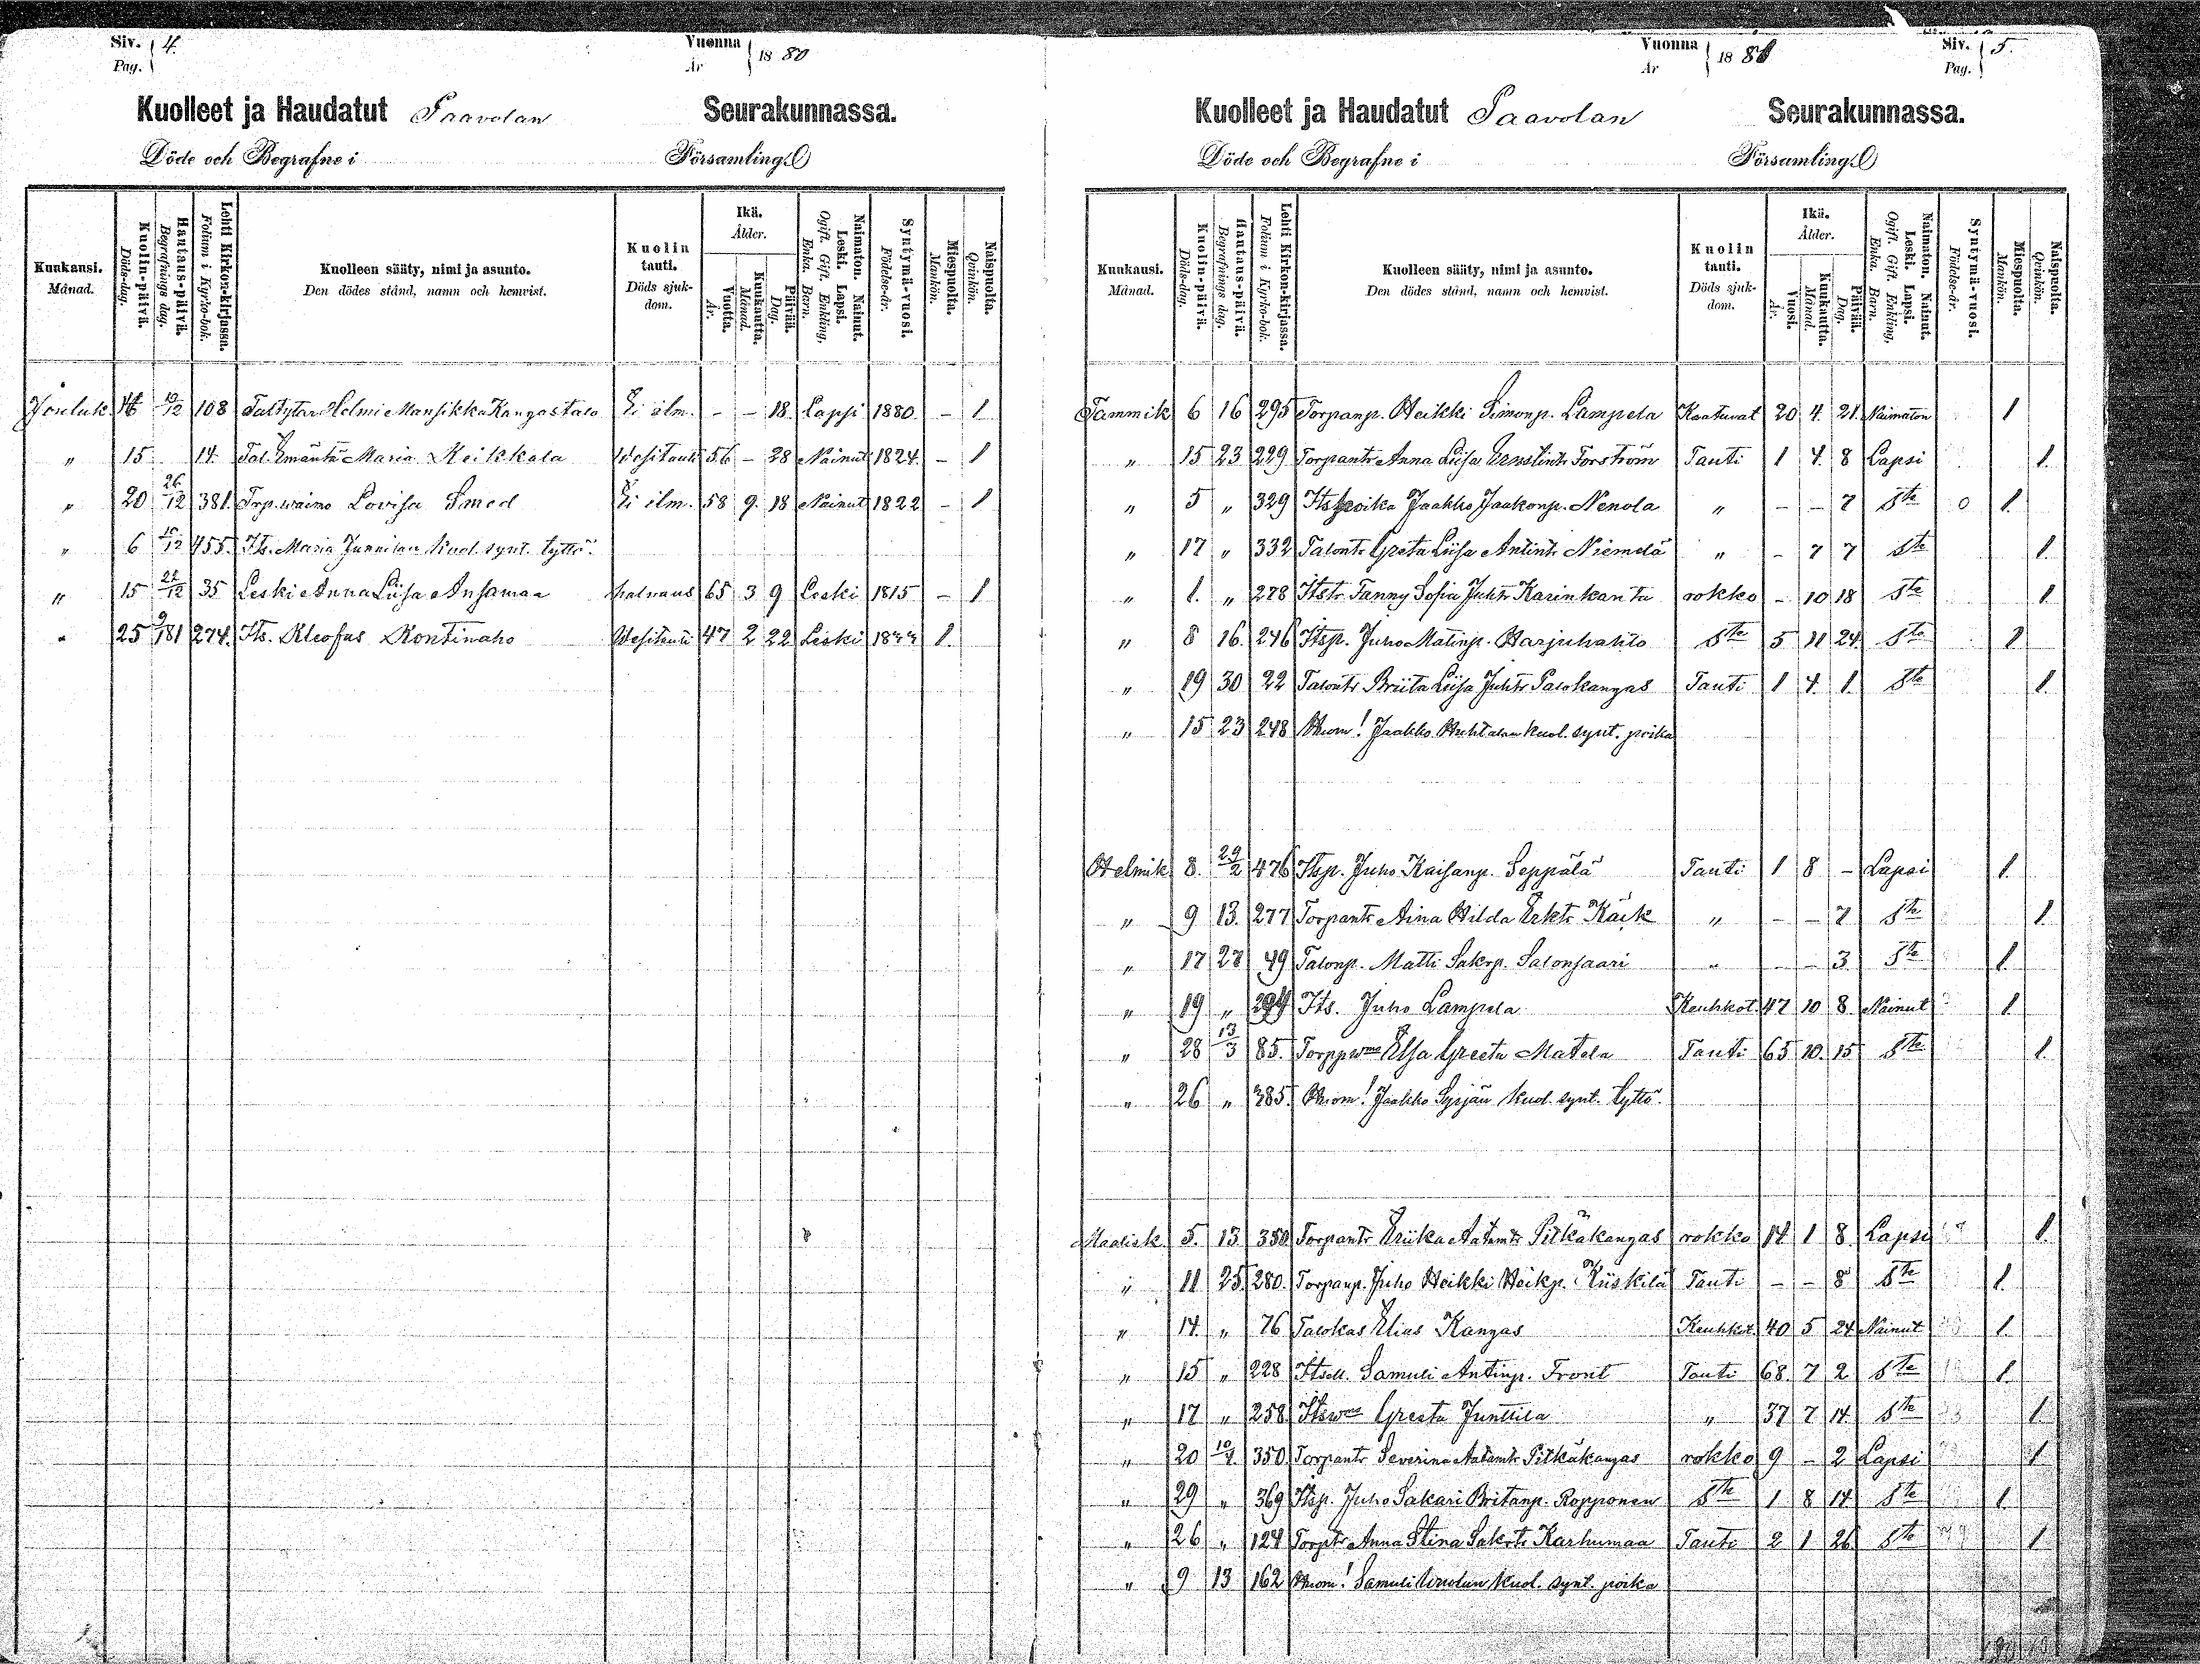 Siv. 4. Vuonna 18 80
Pag. År
Kuolleet ja Haudatut Paavolan Seurakunnassa.
Döde och Begrafne i Församling.
Kuukausi. Månad. Kuolin-päivä. Döds-dag. Hautaus-päivä. Begrafnings dag. Lehti Kirkon-kirjassa. Folium i Kyrko-bok. Kuolleen sääty, nimi ja asunto. Den dödes stånd, namn och hemvist. Kuolin tauti. Döds sjuk-dom. Ikä. Ålder. Vuotta. År. Kuukautta. Månad. Päivää. Dag. Naimaton. Nainut. Leski. Lapsi. Ogift. Gift. Enkling, Enka. Barn. Syntymä-vuosi. Födelse-år. Miespuolta. Mankön. Naispuolta. Qvinkön.
Jouluk. 16 19/12 108 Tal.tytär Helmi Mansikka Kangastalo Ei ilm. - - 18. Lapsi 1880. - 1
" 15 14. Tal. Emäntä Maria Keikkala Wesitauti 56 - 28 Nainut 1824. - 1
" 20 26/12 381. Trp. waimo Lovisa Smed Ei ilm. 58 9. 18 Nainut 1822 - 1
" 6 455. Its. Maria Junnilan kuol. synt. tyttö.
" 15 35 Leski Anna Liisa Ansamaa halvaus 65 3 9 Leski 1815 - 1
" 25 9/1 81 274. Its. Kleofas Kontinaho Wesitauti 47 2 22 Leski 1833 1.
Vuonna 18 81 Siv. 5.
År Pag.
Kuolleet ja Haudatut Paavolan Seurakunnassa.
Döde och Begrafne i Församling.
Kuukausi. Månad. Kuolin-päivä. Döds-dag. Hautaus-päivä. Begrafnings dag. Lehti Kirkon-kirjassa. Folium i Kyrko-bok. Kuolleen sääty, nimi ja asunto. Den dödes stånd, namn och hemvist. Kuolin tauti. Döds sjuk-dom. Ikä. Ålder. Vuosi. År. Kuukautta. Månad. Päivää. Dag. Naimaton. Nainut. Leski. Lapsi. Ogift. Gift. Enkling, Enka. Barn. Syntymä-vuosi. Födelse-år. Miespuolta. Mankön. Naispuolta. Qvinkön.
Tammik 6 16 295 Torpanp. Heikki Simonp. Lampela Kaatuvat 20 4. 21. Naimaton 1
" 15 23 229 Torpantr Anna Liisa Ernstintr Forström Tauti 1 4. 8 Lapsi 1.
" 5 " 329 Its poika Jaakko Jaakonp. Nenola " - - 7 Ste 0 1.
" 17 " 332 Talontr Greta Liisa Antintr Niemelä " - 7 7 Ste 1.
" 1. " 278 Itstr Fanny Sofia Juhtr Karinkanta rokko - 10 18 Ste 1
" 8 16. 246 Itsp. Juho Matinp. Harjuhahto Ste 5 11 24. Ste 1
" 19 30 22 Talontr Briita Liisa Juhtr Palokangas Tauti 1 4. 1. Ste 1.
" 15 23 248 Huom! Jaakko Huhtalan kuol. synt. poika
Helmik 8. 476 Itsp. Juho Kaisanp. Seppälä Tauti 1 8 - Lapsi 1.
" 9 13. 277 Torpantr Aina Hilda Erktr Käck " - - 7 Ste 1.
" 17 27 49 Talonp. Matti Sakrp. Salonsaari " - - 3 Ste 1.
" 19 " 294 Its. Juho Lampela Keuhkot. 47 10 8. Nainut 1
" 28 13/3 85. Torppwmo Elsa Greeta Matela Tauti 65 10. 15 Ste 1.
" 26 " 385. Huom! Jaakko Syrjän kuol. synt. tyttö.
Maalisk. 5. 13 350 Torpantr Eriika Aatamtr Pitkäkangas rokko 14 1 8 Lapsi 1.
" 11 25. 280. Torpanp. Juho Heikki Heikp. Kiiskilä Tauti - - 8 Ste 1.
" 14. " 76 Talokas Elias Kangas Keuhkot. 40 5 24 Nainut 1.
" 15 " 228 Itsell. Samuli Antinp. Front Tauti 68. 7 2 Ste 1.
" 17 " 258 Itswmo Greeta Junttila " 37 7 14. Ste 1.
" 20 10/4. 350. Torpantr Severina Aatamtr Pitkäkangas rokko 9 - 2 Lapsi 1.
" 29 " 369 Itsp. Juho Sakari Britanp. Ropponen Ste 1 8 14 Ste 1.
" 26 " 124 Torptr Anna Stina Sakrtr Karhumaa Tauti 2 1 26. Ste 1.
" 9 13 162 Huom! Samuli kuol. synt. poika